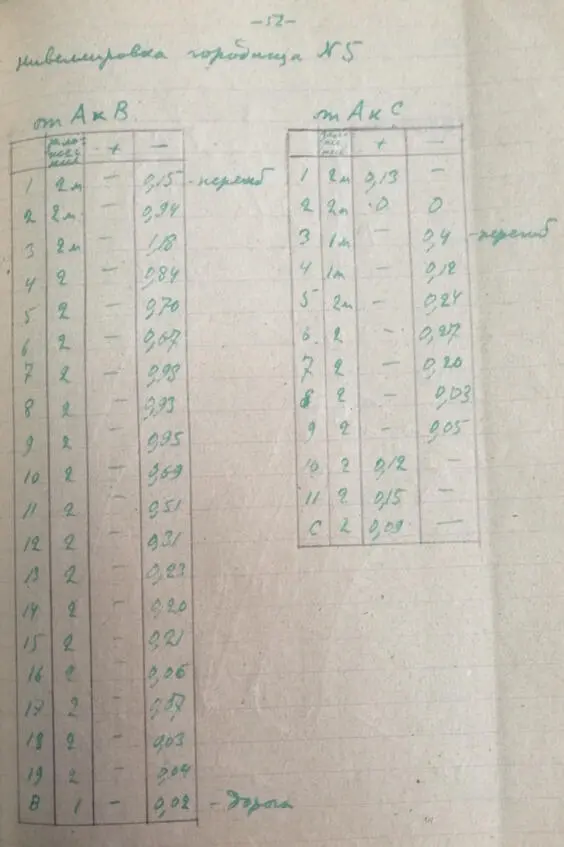 -52-
нивеллировка городища N5
от А к В
+ —
1 2м — 0,15 - перегиб
2 2м — 0,94
3 2м — 1,18
4 2 — 0,84
5 2 — 0,70
6 2 — 0,67
7 2 — 0,98
8 2 — 0,93
9 2 — 0,95
10 2 — 0,69
11 2 — 0,51
12 2 — 0,31
13 2 — 0,23
14 2 — 0,20
15 2 — 0,21
16 2 — 0,06
17 2 — 0,07
18 2 — 0,03
19 2 — 0,04
В 1 — 0,02 - дорога
от А к С
+ —
1 2м 0,13 —
2 2м 0 0
3 1м - 0,4 - перегиб
4 1м - 0,12
5 2м - 0,24
6 2 - 0,27
7 2 - 0,20
8 2 - 0,03
9 2 - 0,05
10 2 0,12 —
11 2 0,15 —
С 2 0,09 —